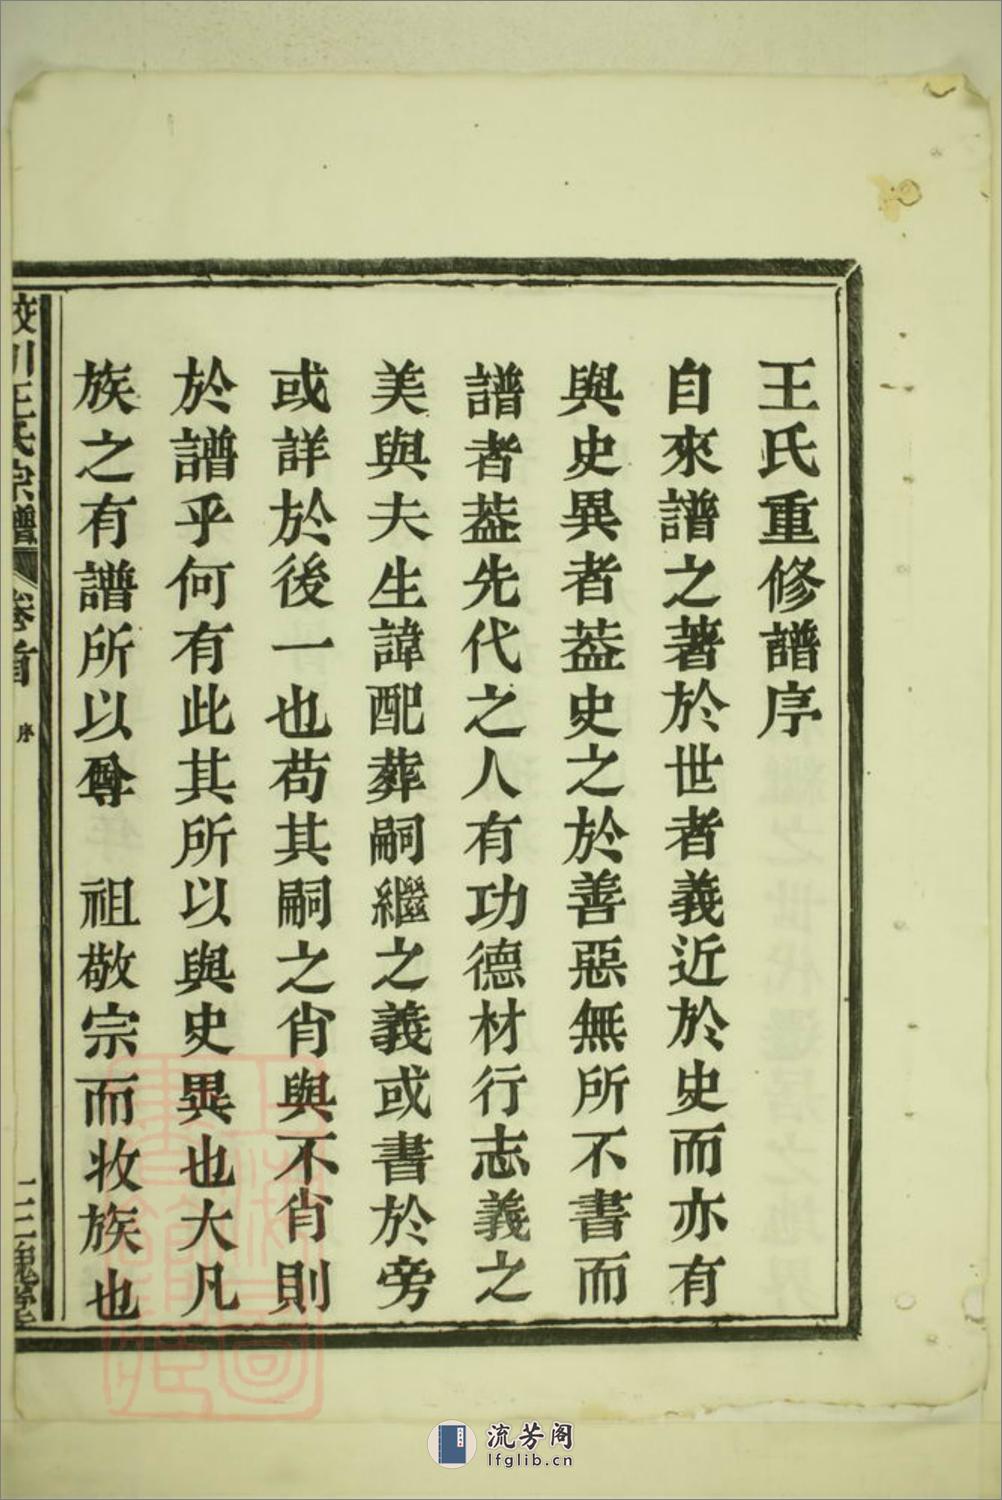 王氏重修譜序
自來譜之著於世者義近於史而亦有
與史異者葢史之於善惡無所不書而
譜者葢先代之人有功德材行志義之
美與夫生諱配葬嗣繼之義或書於旁
或詳於後一也苟其嗣之肖與不肖則
於譜乎何有此其所以與史異也大凡
族之有譜所以尊 祖敬宗而收族也
川王氏宗譜 卷首 序 三槐堂
上海圖書館藏
流芳阁
lfglib.cn